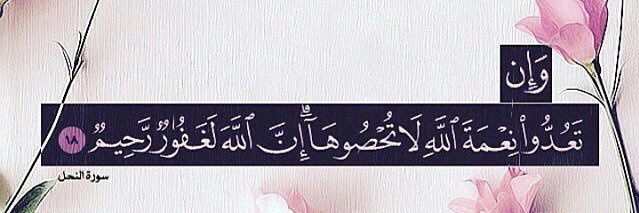 وَإِن
تَعُدُّوا۟ نِعْمَةَ ٱللَّهِ لَا تُحْصُوهَآ ۗ إِنَّ ٱللَّهَ لَغَفُورٌ رَّحِيمٌ ١٨
سورة النحل